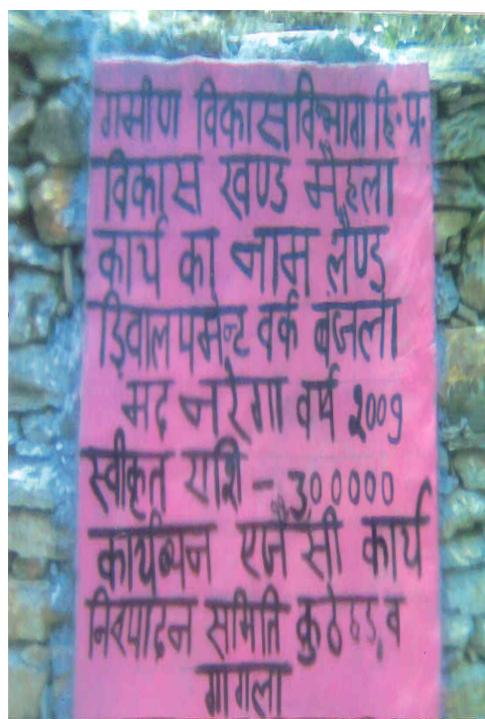 ग्रामीण विकास विभाग हि॰ प्र॰
विकास खण्ड मैहला
कार्य का नाम लैण्ड
डिवालपमेन्ट वर्क बजला
मद नरेगा वर्ष 2009
स्वीकृत राशि – 300000
कार्यब्यन एजैंसी कार्य
निष्पादन समिति व
गागला